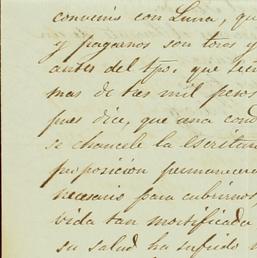 convenis con Luna, qu
y pagarnos son toros y
antes del tpo. que señ
mas de tres mil pesos
pues dice, que una cond
se chancele la escritura
proposicion permanecera
necesario para cubrirnos,
vida tan mortificada
su salud ha sufrido